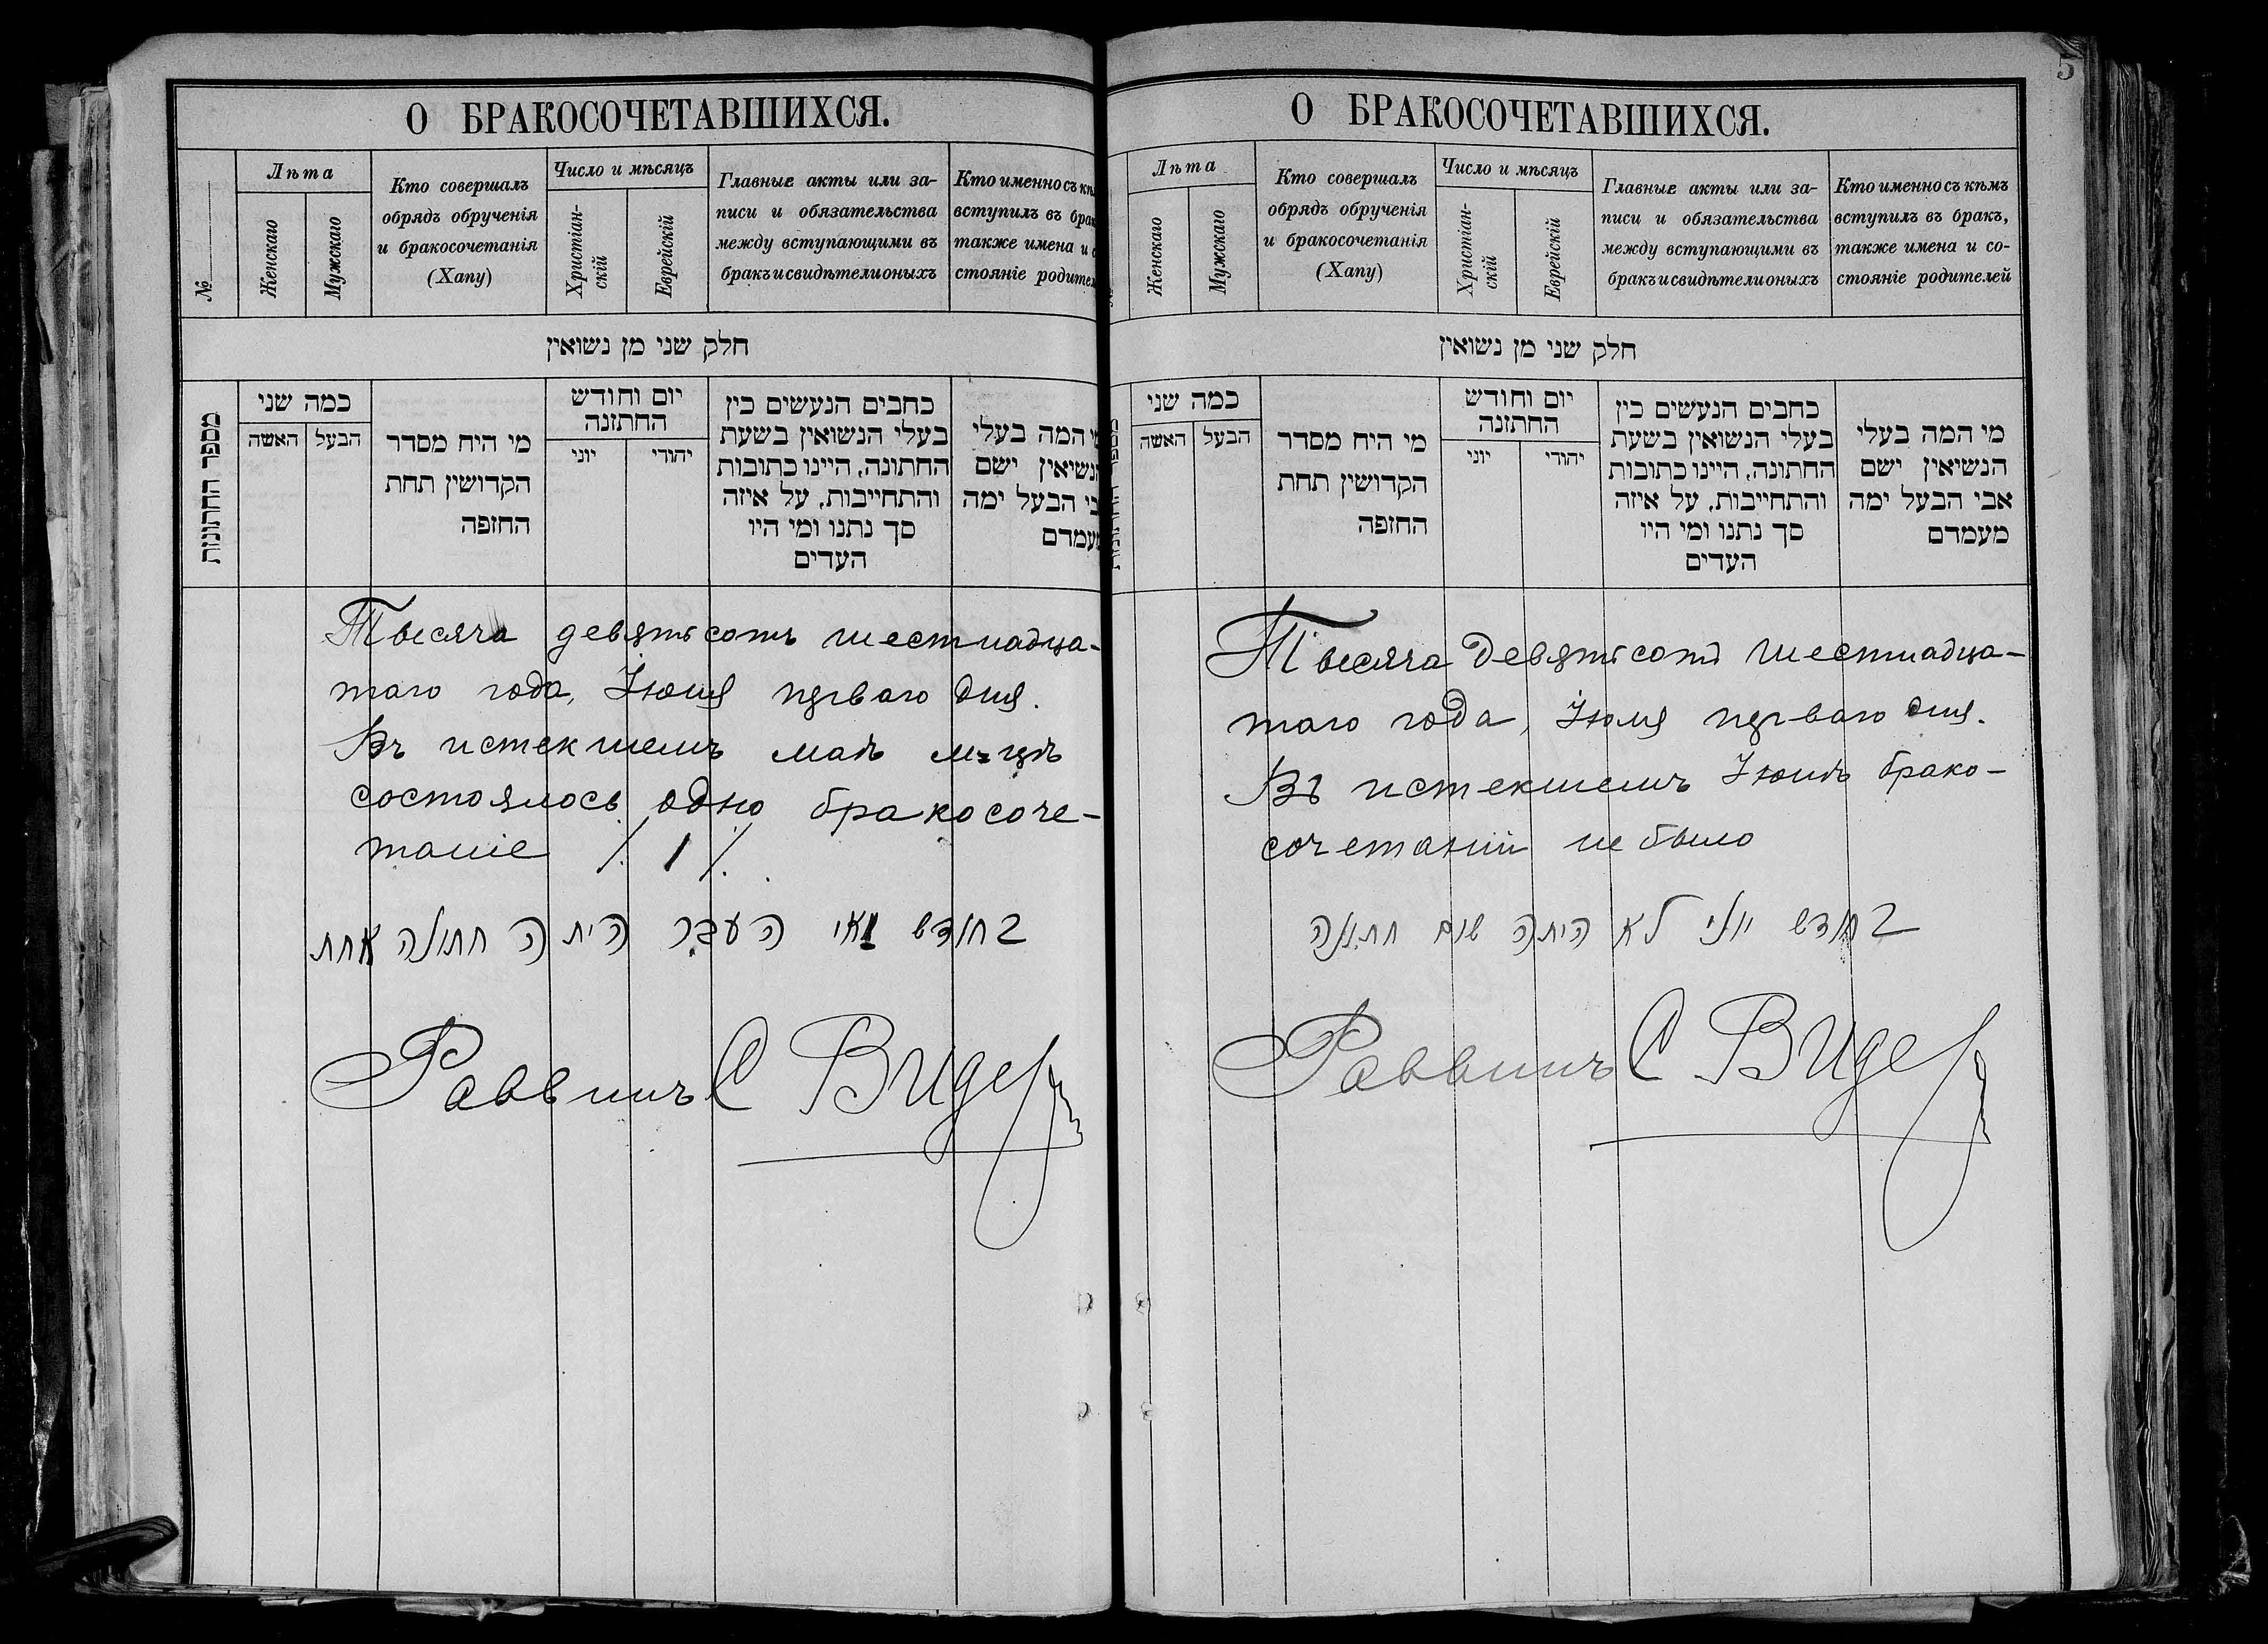 О БРАКОСОЧЕТАВШИХСЯ.
№
Лѣта
Женскаго
Мужскаго
Кто совершалъ
обрядъ обрученія
и бракосочетанія
(Хапу)
Число и мѣсяцъ
Христіан-
скій
Еврейскій
Главные акты или за-
писи и обязательства
между вступающими въ
бракъ и свидѣтели оныхъ
Кто именно съ
вступилъ въ
также имена и
стояніе
חלק שני מן נשואין
מספר החתונות
כמה שני
האשה
הבעל
מי היח מסדר
הקדושין תחת
החופה
יום וחודש
החתונה
יוני
יהודי
כחבים הנעשים כין
בעלי הנשואין בשעת
החתונה, היינו כתובות
והתחייבות, על איזה
סך נתנו ומי היו
העדים
המה בעלי
ישם
הבעל ימה
Тысяча девятьсотъ шестнадца-
таго года, Іюня перваго дня.
Въ истекшемъ маѣ м-цѣ
состоялось одно бракосоче-
таніе /. 1 /.
בחודש מאי העבר היתה חתונה אחת
Раввинъ С Видер
5
О БРАКОСОЧЕТАВШИХСЯ.
Лѣта
Женскаго
Мужскаго
Кто совершалъ
обрядъ обрученія
и бракосочетанія
(Хапу)
Число и мѣсяцъ
Христіан-
скій
Еврейскій
Главные акты или за-
писи и обязательства
между вступающими въ
бракъ и свидѣтели оныхъ
Кто именно съ кѣмъ
вступилъ въ бракъ,
также имена и со-
стояніе родителей
חלק שני מן נשואין
כמה שני
האשה
הבעל
מי היח מסדר
הקדושין תחת
החופה
יום וחודש
החתונה
יוני
יהודי
כחבים הנעשים כין
בעלי הנשואין בשעת
החתונה, היינו כתובות
והתחייבות, על איזה
סך נתנו ומי היו
העדים
מי המה בעלי
הנשיאין ישם
אבי הבעל ימה
מעמדם
Тысяча девятьсотъ шестнадца-
таго года, Іюля перваго дня.
Въ истекшемъ Іюнѣ брако-
сочетаній не было
בחודש יוני לא היתה שום חתונה
Раввинъ С Видер